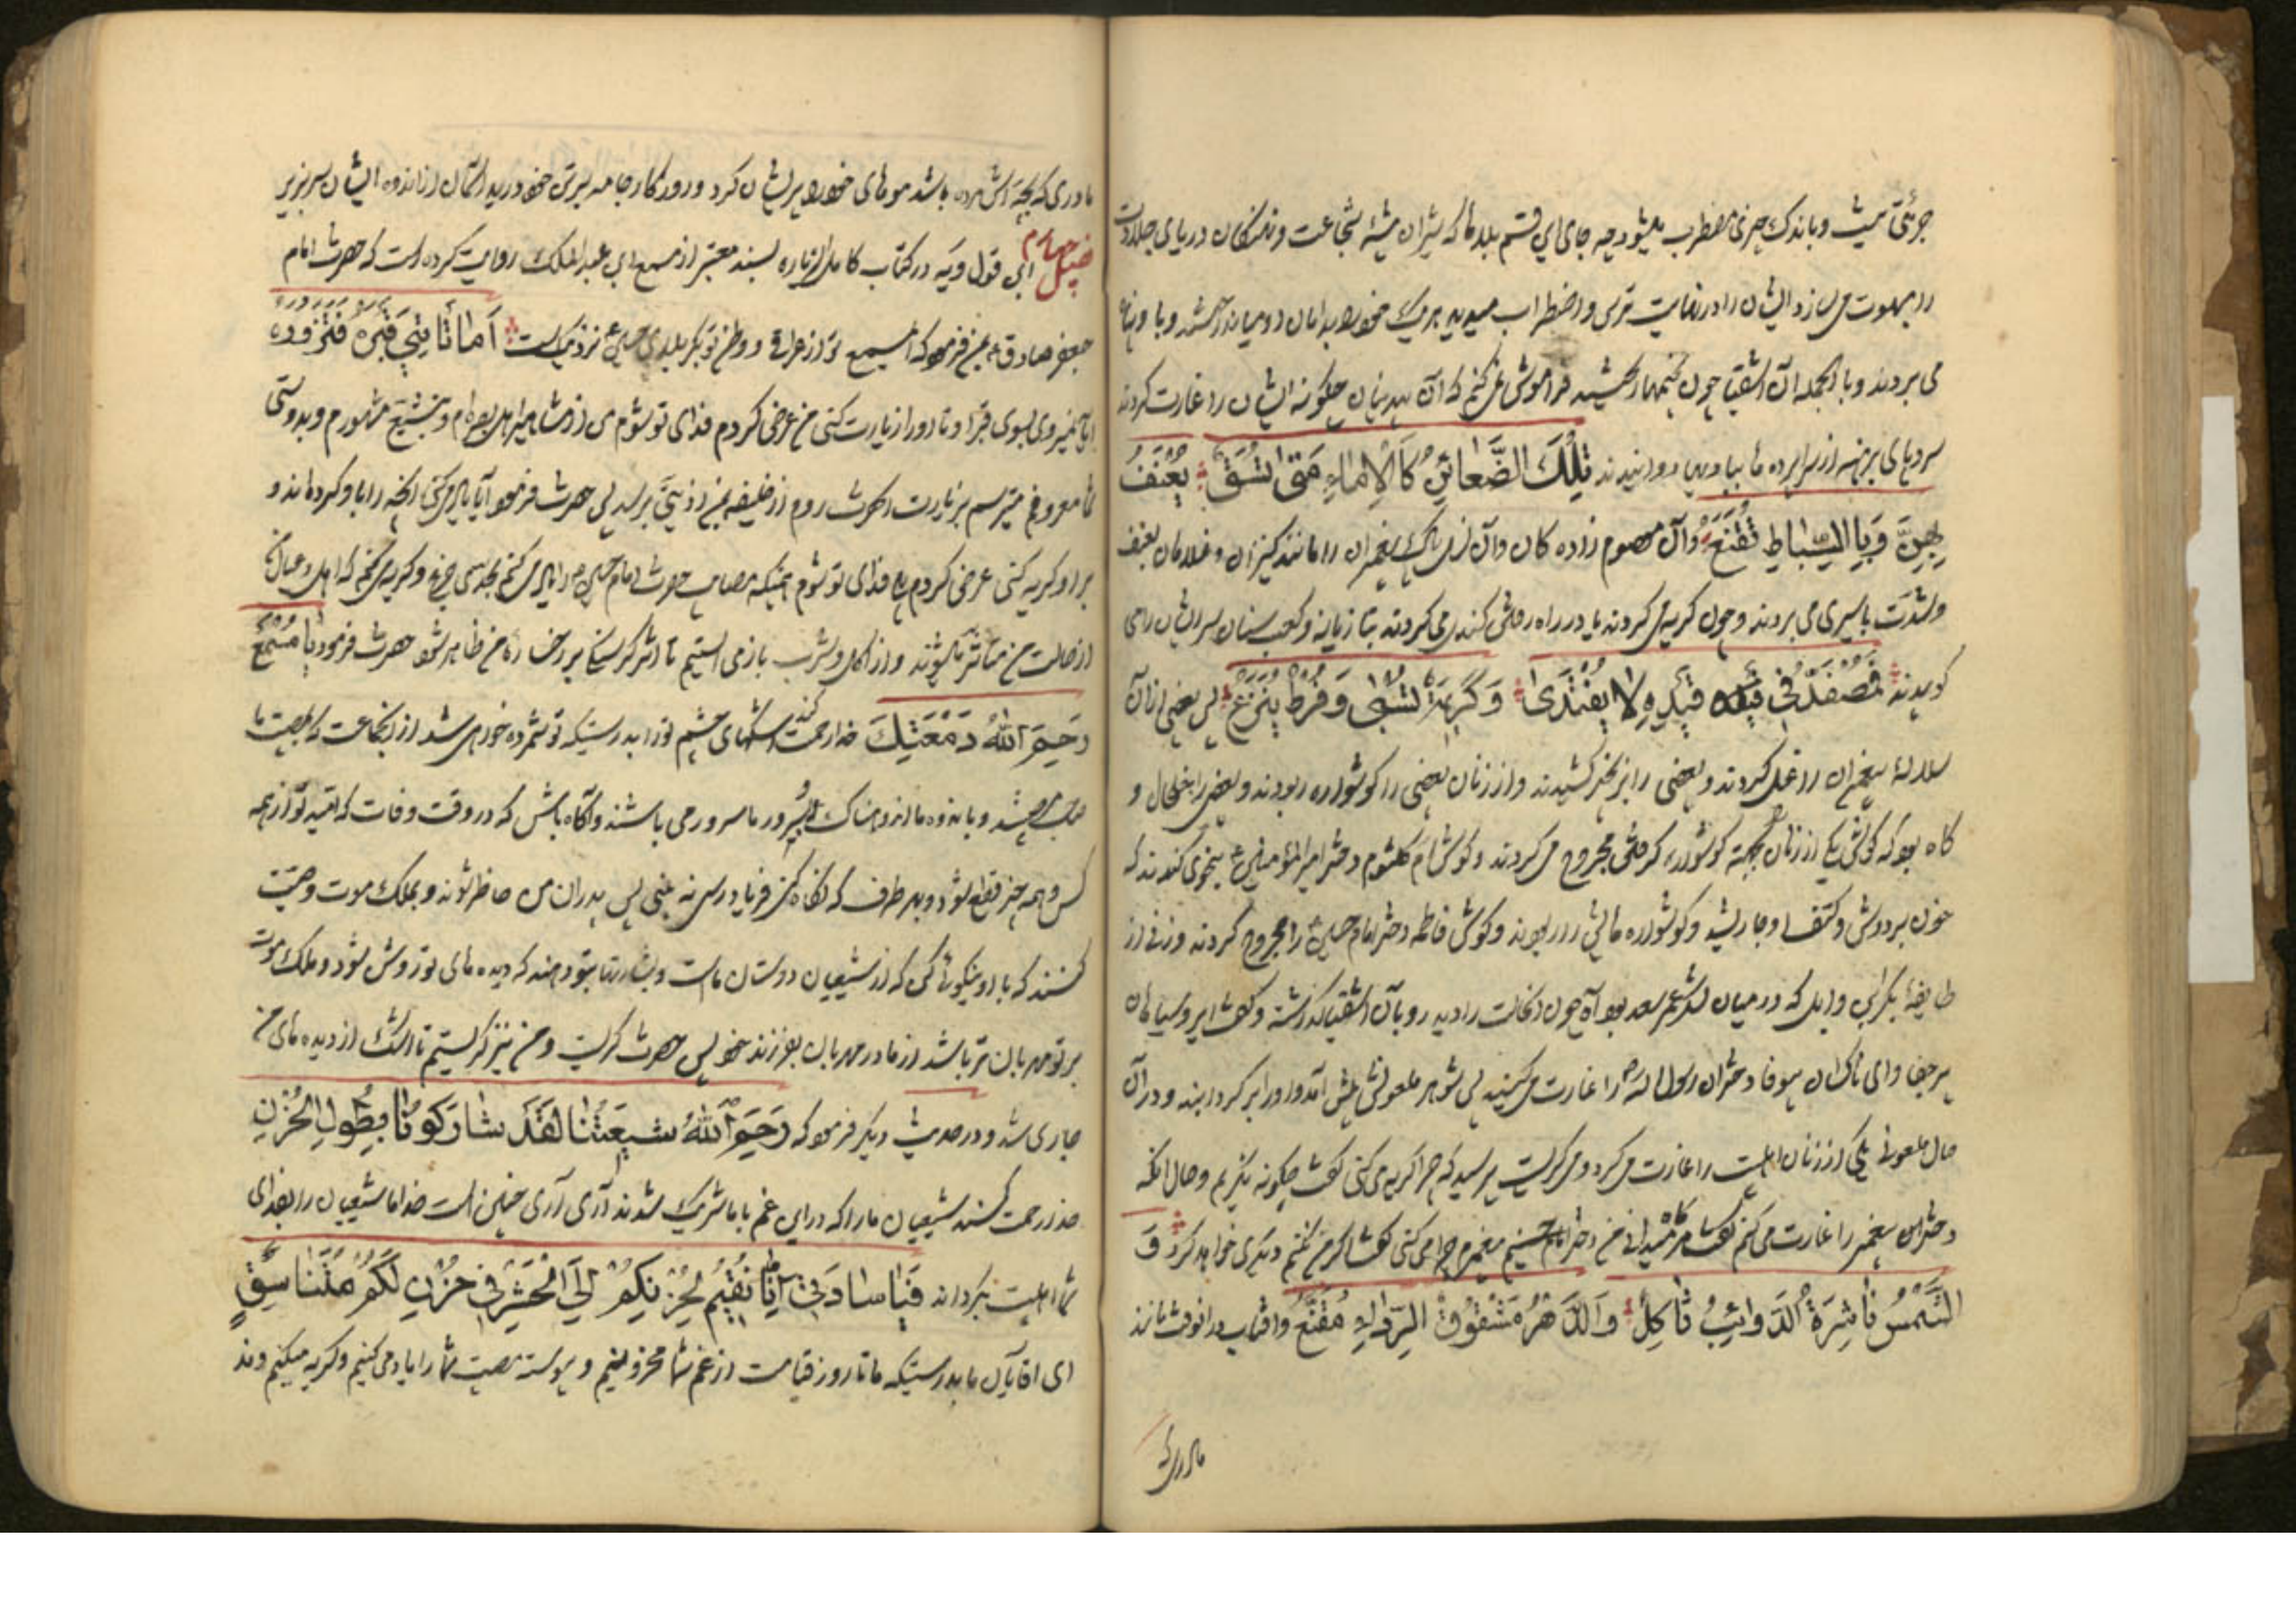 جرئتی نیست و باندک چیزی مضطرب میشود چه جای این قسم بلاها که شیران بیشهٔ شجاعت و نهنگان دریای جلادت
را مبهوت می سازد ایشان را در نهایت ترس و اضطراب میدیدید هر یک خود را بدامان و میان
می بردند و بالجمله آن اشقیا چون بخیمها رسیدند فراموش نمی کنم که آن بیدینان چگونه ایشان را غارت کردند
سر و پای برهنه از سراپرده ها دوانیدند تِلْكَ الضَّعائِنُ كَالْاِماءِ مَتىٰ تُسَقْ يُعْنَفْ
بِهِنَّ وَبِالسِّيَاطِ تُقَنَّعُ وآن معصوم زاده کان وآن پیغمبران را مانند کنیزان و غلامان بعنف
وشدت باسیری می بردند و چون گریه می کردند یا در راه رفتن کندی می کردند بتازیانه و کعب سنان بر سر ایشان می
کوبیدند فَمُصَفَّدٌ فِي قَيْدِهِ لا يُفْتَدىٰ وَكَرِيمَةٌ تُسْبىٰ وَقُرْطٌ يُنْزَعُ پس بعضی از آن
سلالهٔ پیغمبران را غل کردند و بعضی را بزنجیر کشیدند و از زنان بعضی را گوشواره ربودند و بعضی را خلخال و
گاه بود که گوش یکی از زنان بجهة گوشواره گرفتن مجروح می کردند و گوش ام کلثوم دختر امیرالمؤمنین ع کندند که
خون بر دوش و کتف او جاری شد و گوشواره هایش را ربودند و گوش فاطمه دختر امام حسین ع را مجروح کردند و زنی از
طایفهٔ بکر بن وایل که در میان لشکر عمر سعد بود چون آن حالت را دید رو بآن اشقیا کرد و گفت ای روسیاهان
پر جفا و ای ناکسان بیوفا دختران رسول الله را غارت می کنید پس شوهر ملعونش پیش آمد و او را برگردانید و در آن
حال ملعونی یکی از زنان اهلبیت را غارت می کرد و می گریست پرسید که چرا گریه می کنی گفت چگونه نگریم و حال آنکه
دختران پیغمبر را غارت می کنم گفت هرگاه میدانی من دختر پیغمبرم چرا می کنی گفت اگر من نکنم دیگری خواهد کرد وَ
الشَّمْسُ نَاشِرَةُ الذَّوَائِبِ ثَاكِلٌ وَالدَّهْرُ مَشْقُوقُ الرِّدَاءِ مُقَنَّعُ و آفتاب در آنوقت مانند
مادری که
مادری که بچه اش مرده باشد موهای خود را پریشان کرد و روزگار جامه بر تن خود درید آسمان از اندوه ایشان سر بزیر
فصل چهارم ابن قولویه در کتاب کامل الزیاره بسند معتبر از مسمع ابن عبدالملک روایت کرده است که حضرت امام
جعفر صادق ع بمن فرمود که ای مسمع تو از عراقی و وطن تو بکربلای حسین ع نزدیک است اَما تَأتِي قَبْرَهُ فَتَزُورُهُ
آیا نمیروی بسوی قبر او تا او را زیارت کنی من عرض کردم فدای تو شوم من از مشاهیر اهل بصره ام و بتشیع مشهورم و بدوستی
شما معروفم میترسم بزیارت آنحضرت روم از خلیفه بمن اذیتی برسد پس حضرت فرمود آیا یاد می کنی آنچه را با او کرده اند و
بر او گریه کنی عرض کردم بلی فدای تو شوم همینکه مصایب حضرت امام حسین را یاد می کنم بحدی جزع و گریه می کنم که اهل و عیال
از حالت من متأثر میشوند و از اکل و شرب باز می ایستم تا اثر گرسنگی بر رخساره من ظاهر شود حضرت فرمود یا مِسْمَعُ
رَحِمَ اللهُ دَمْعَتَكَ خدا رحمت کند اشکهای چشم تو را بدرستیکه تو شمرده خواهی شد از آن جماعت که بمصیبت ما
و باندوه ما اندوهناک و بسرور ما مسرور می باشند و آگاه باش که در وقت وفات که امید تو از همه
کس و همه چیز قطع شود و بهر طرف که نگاه کنی فریادرسی نه بینی پس پدران من حاضر شوند و بملک موت وصیت
کنند که با او نیکوئی کن که از شیعیان و دوستان ماست و بشارتها بتو دهند که دیده های تو روشن شود و ملک موت
بر تو مهربان تر باشد از مادر مهربان بفرزند خود پس حضرت گریست و من نیز گریستم تا اشک از دیده های من
جاری شد و در حدیث دیگر فرمود که رَحِمَ اللهُ شِيعَتَنَا لَقَدْ شَارَكُونَا بِطُولِ الْحُزْنِ
خدا رحمت کند شیعیان ما را که در این غم با ما شریک شدند آری آری چنین است خدا ما شیعیان را بفدای
شما اهلبیت بگرداند فَيَا سَادَتِي اِنَّا نُقِيمُ لِحُزْنِكُمْ اِلَى الْحَشْرِ فِي حُزْنٍ لَكُمْ مُتَنَاسِقٍ
ای آقایان ما بدرستیکه ما تا روز قیامت از غم شما محزونیم و پیوسته مصیبت شما را یاد می کنیم و گریه میکنیم و ند